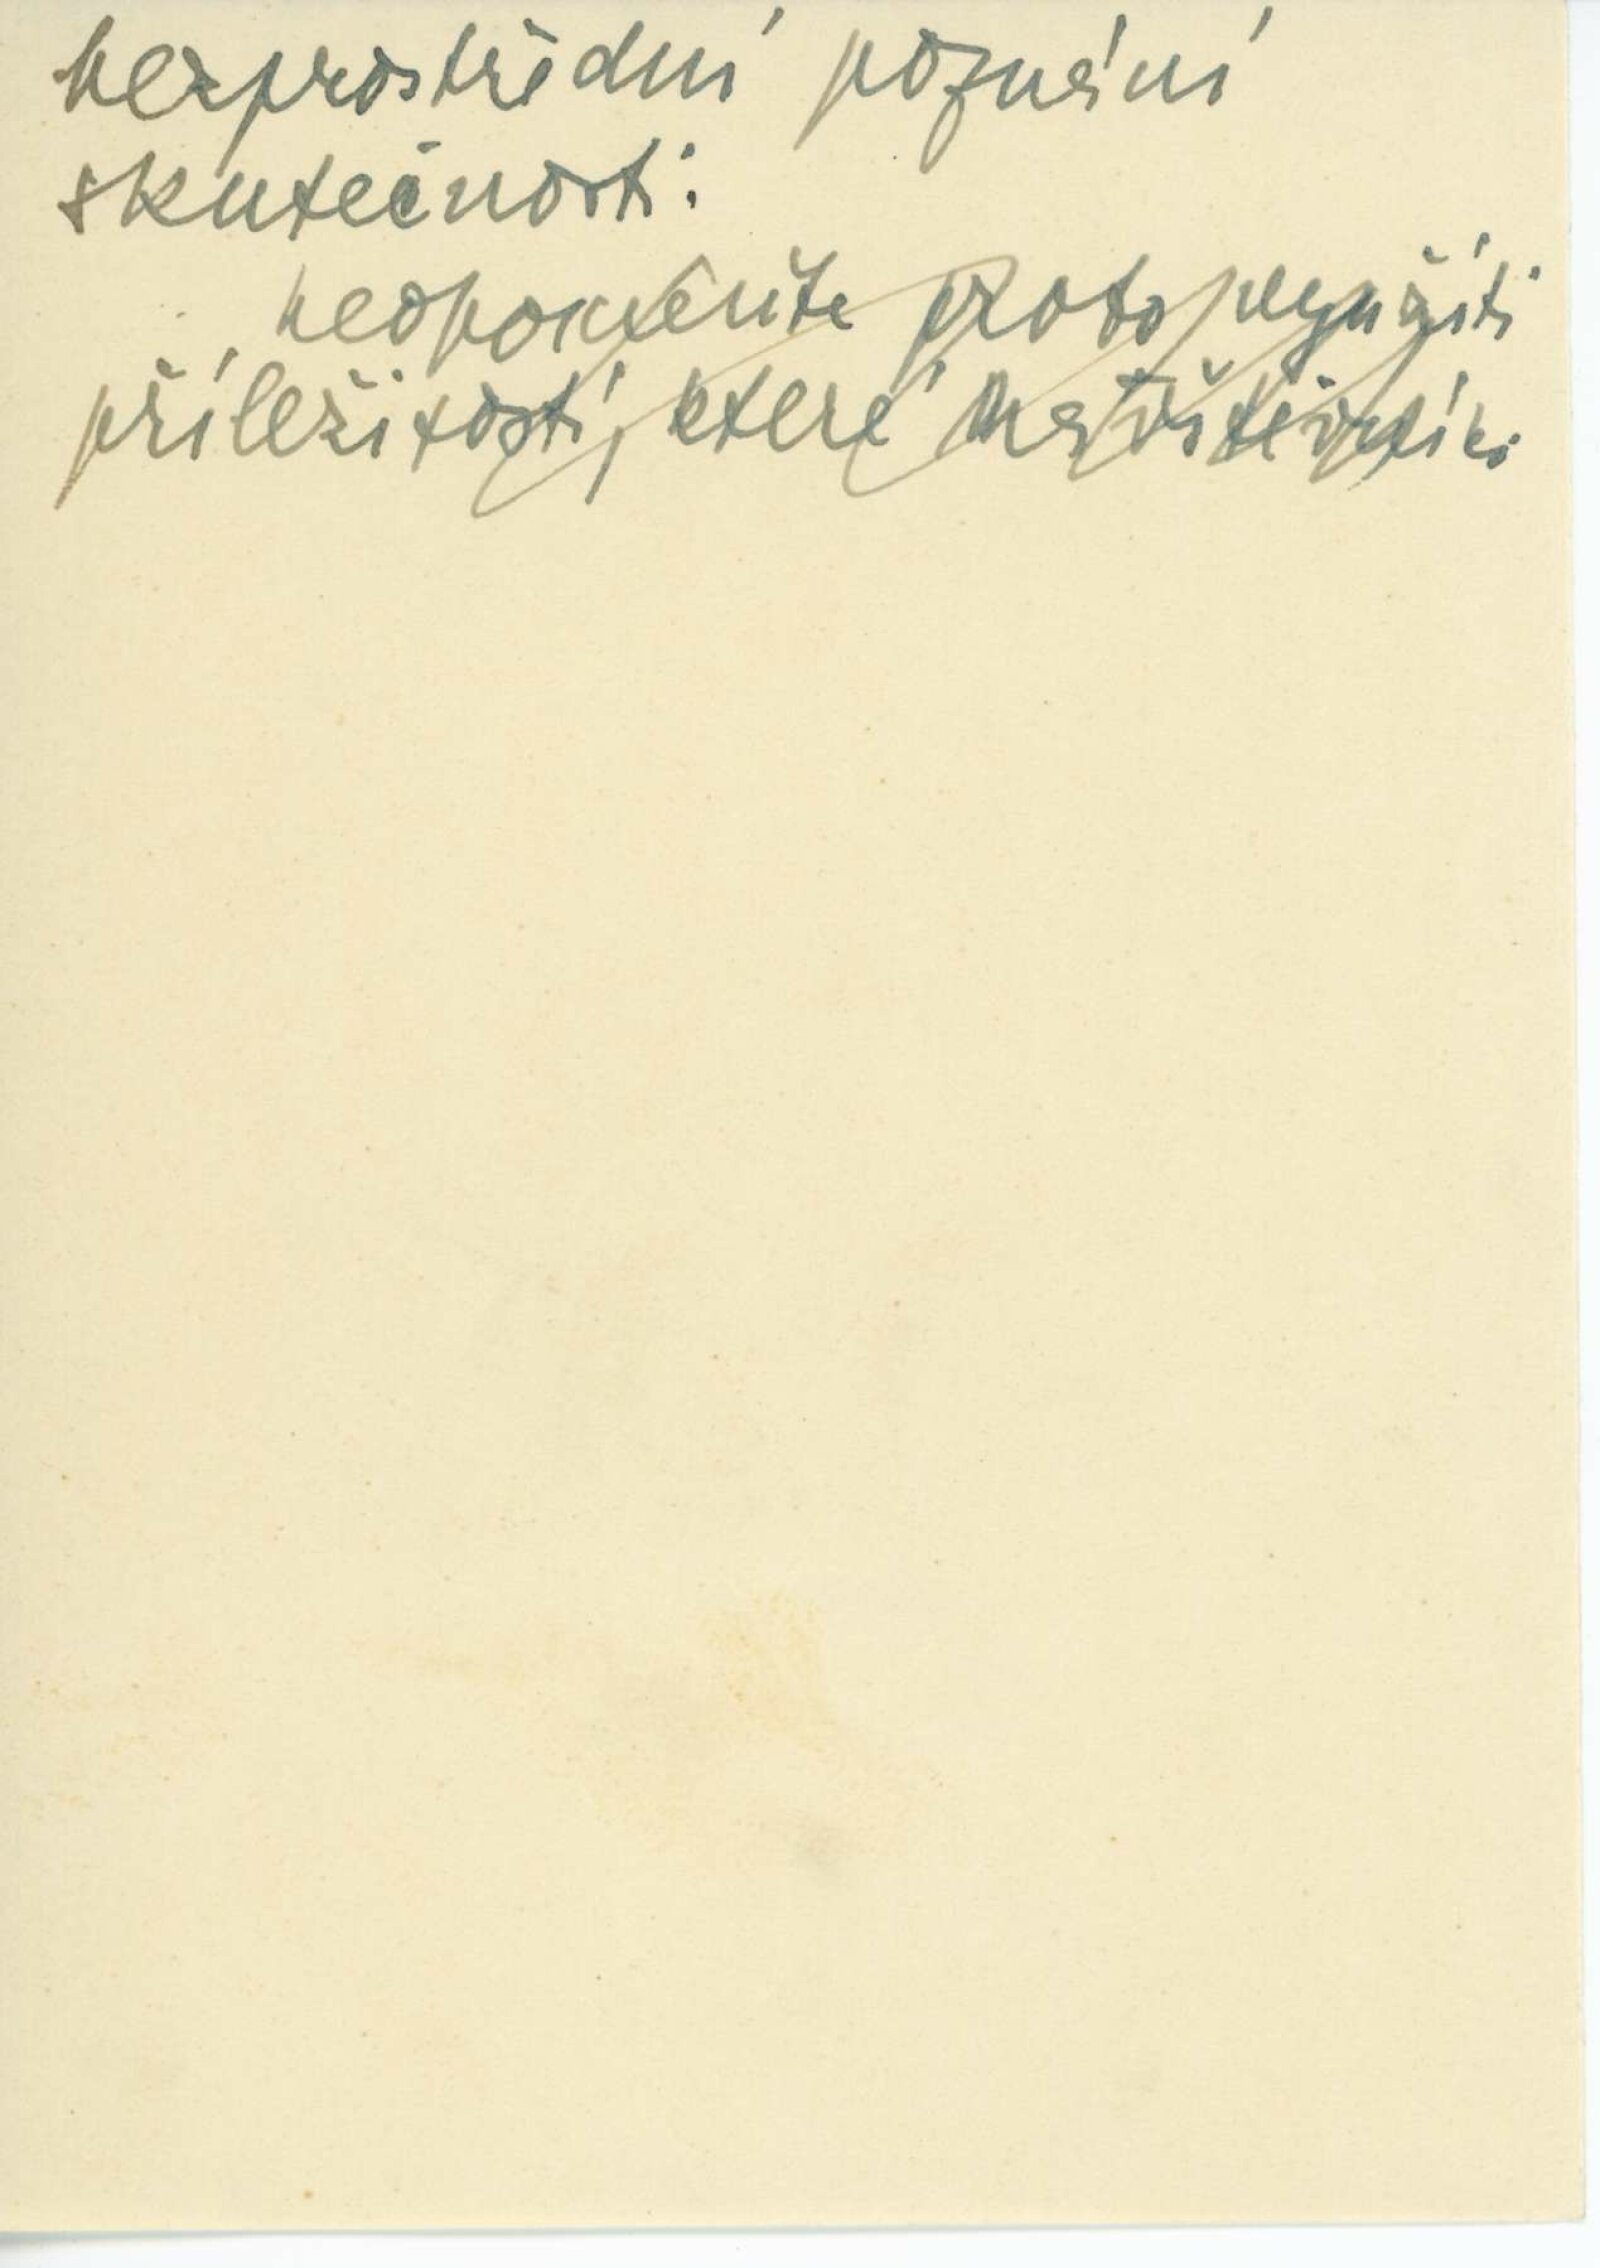 bezprostřední poznání
skutečnosti.
neopomeňte proto využíti
příležitosti, které návštěvníku